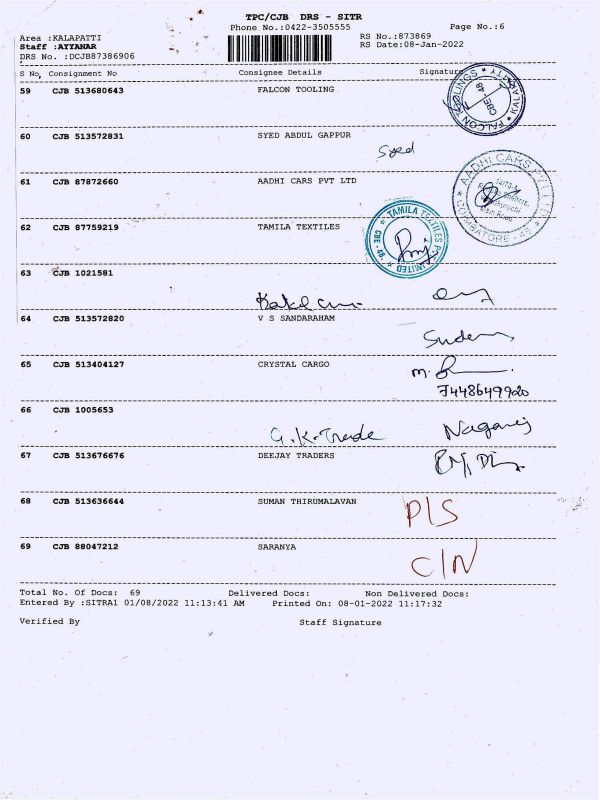 TPC/CJB DRS - SITR
Phone No.:0422-3505555
Page No.:6
Area :KALAPATTI
RS No.:873869
Staff :AYYANAR
RS Date:08-Jan-2022
DRS No. :DCJB87386906
S No, Consignment No Consignee Details Signature
59 CJB 513680643 FALCON TOOLING
FALCON TOOLINGS * KALAPATTY *
CBE-48
60 CJB 513572831 SYED ABDUL GAPPUR
Syed
61 CJB 87872660 AADHI CARS PVT LTD
AADHI CARS PVT LTD
COIMBATORE - 48
62 CJB 87759219 TAMILA TEXTILES
TAMILA TEXTILES PVT LIMITED
CBE - 48
63 CJB 1021581
64 CJB 513572820 V S SANDARAHAM
65 CJB 513404127 CRYSTAL CARGO
7448649920
66 CJB 1005653
G.K-Trade Nagaraj
67 CJB 513676676 DEEJAY TRADERS
68 CJB 513636644 SUMAN THIRUMALAVAN
P/S
69 CJB 88047212 SARANYA
C/N
Total No. Of Docs: 69 Delivered Docs: Non Delivered Docs:
Entered By :SITRA1 01/08/2022 11:13:41 AM Printed On: 08-01-2022 11:17:32
Verified By Staff Signature